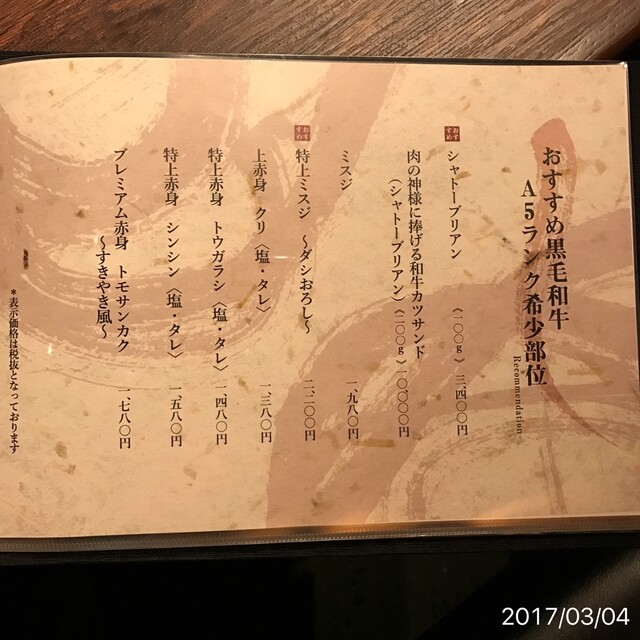 おすすめ黒毛和牛
A5ランク希少部位
Recommendation
おすすめ
シャトーブリアン (一〇〇g) 三、四〇〇円
肉の神様に捧げる和牛カツサンド
(シャトーブリアン) (二〇〇g) 一〇、〇〇〇円
ミスジ 一、九八〇円
おすすめ
特上ミスジ ～ダシおろし～ 二、二〇〇円
上赤身 クリ〈塩・タレ〉 一、三八〇円
特上赤身 トウガラシ〈塩・タレ〉 一、四八〇円
特上赤身 シンシン〈塩・タレ〉 一、五八〇円
プレミアム赤身 トモサンカク
～すきやき風～ 一、七八〇円
＊表示価格は税抜となっております
2017/03/04